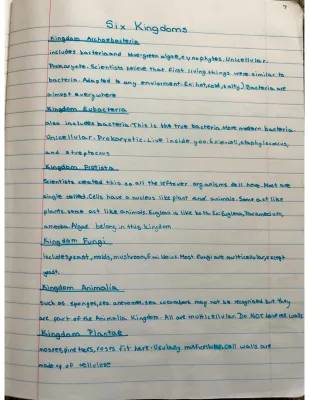 Six Kingdoms
Kingdom Archaebacteria
includes bacteria and blue-green algae, cynophytes. Unicellular.
Prokaryote. Scientists believe that first living things were similar to
bacteria. Adapted to any enviorment. Ex: hot, cold, salty,) Bacteria are
almost everywhere
Kingdom Eubacteria
also includes bacteria. This is the true bacteria. More modern bacteria.
Unicellular. Prokaryotic. Live inside you. Ex:
and streptocus
Kingdom Protista
Scientists created this so all the leftover organisms fall here. Most are
single celled. Cells have a nucleus like plant and animals. Some act like
plants, some act like animals. Euglena is like both. Ex: Euglena, Paramecium,
amoeba. Algae belong in this kingdom
Kingdom Fungi
Includes yeast, molds, mushroom, Most fungi are multicellular, except
yeast.
Kingdom Animalia
Such as sponges, sea anenome, sea cucumbers may not be recognized but they
are part of the Animalia Kingdom. All are multicellular. Do NOT have cell walls
Kingdom Plantae
mosses, pine trees, fit here. Usually multicellular, cell walls are
made up of cellulose